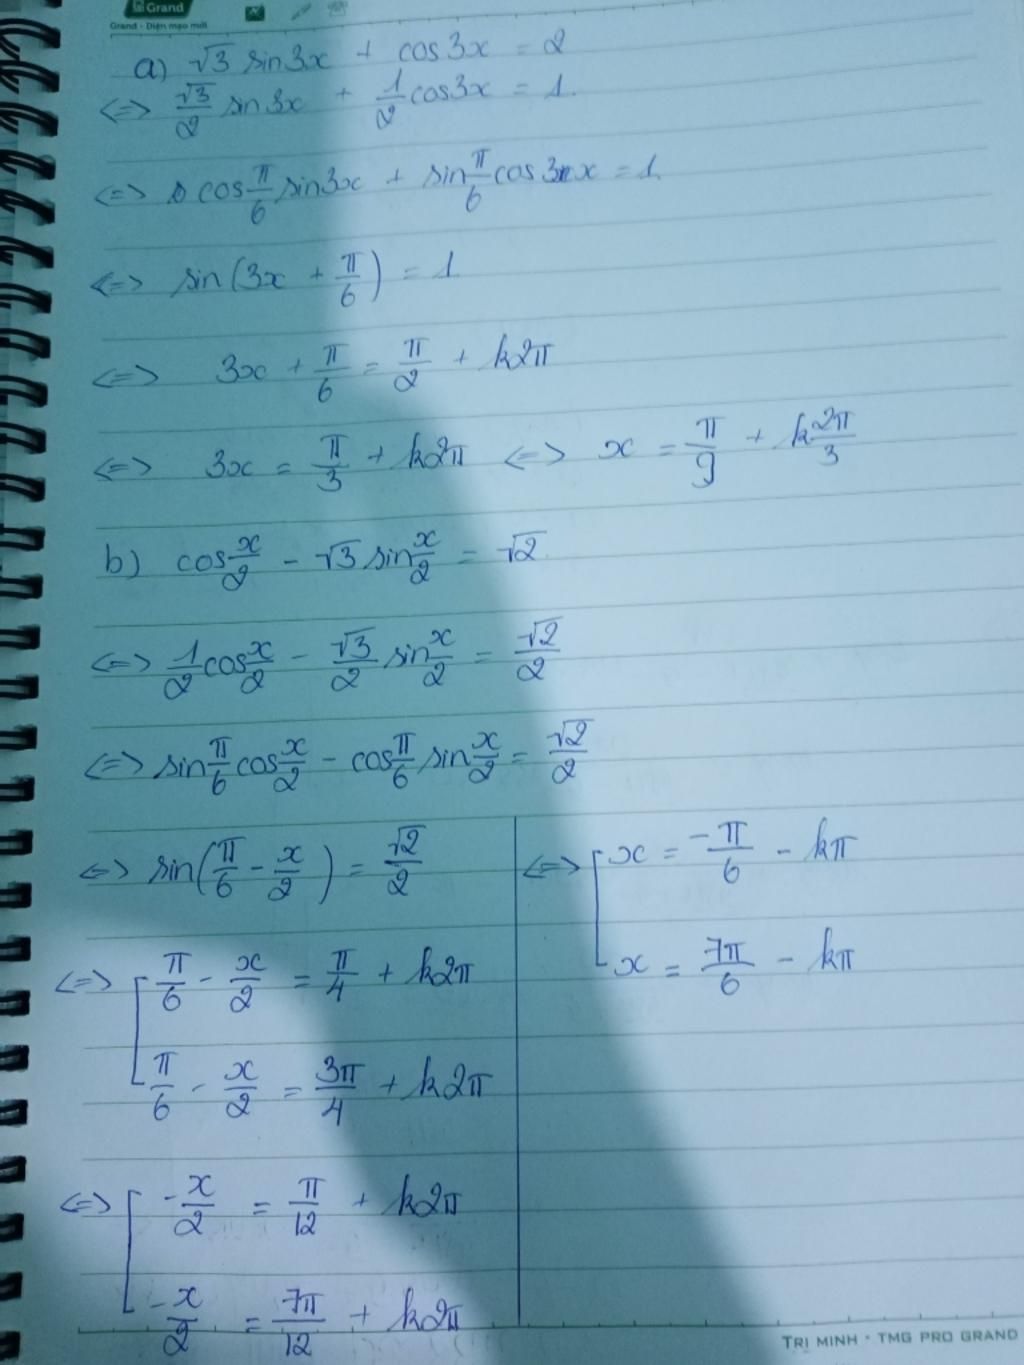 Grand
Grand - Diện mạo mới
a) √3 sin3x + cos3x = 2
<=> √3/2 sin3x + 1/2 cos3x = 1.
<=> cos π/6 sin3x + sin π/6 cos3x = 1.
<=> sin(3x + π/6) = 1
<=> 3x + π/6 = π/2 + k2π
<=> 3x = π/3 + k2π <=> x = π/9 + k2π/3
b) cos x/2 - √3 sin x/2 = √2
<=> 1/2 cos x/2 - √3/2 sin x/2 = √2/2
<=> sin π/6 cos x/2 - cos π/6 sin x/2 = √2/2
<=> sin(π/6 - x/2) = √2/2
<=> [ π/6 - x/2 = π/4 + k2π
π/6 - x/2 = 3π/4 + k2π
<=> [ -x/2 = π/12 + k2π
-x/2 = 7π/12 + k2π
<=> [ x = -π/6 - kπ
x = 7π/6 - kπ
TRI MINH • TMG PRO GRAND